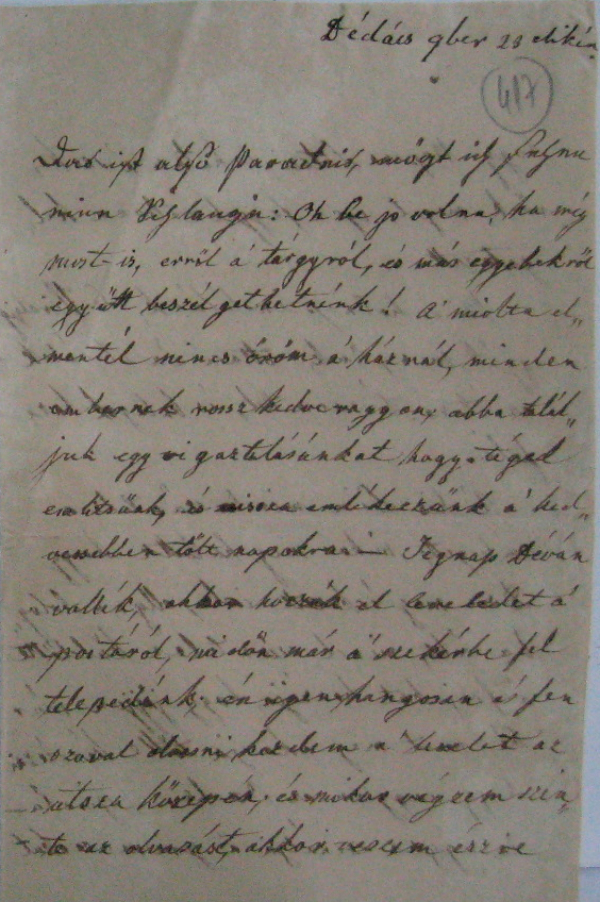 Dédács 9ber 28dikán
417
Das ist also Paradnis, mögt ich sehn
: Oh be jo volna, ha még
most is, erről á tárgyról, és más egyebekről
együtt beszélgethetnénk! A miolta el„
mentél nincs öröm á háznál, minden
embernek rossz kedve vagyon, abba talál„
juk egy vigasztalásunkat hogy téged
emlitsünk, és vissza emlékezzünk a' ked„
vessebben tölt napokra. — Tegnap Déván
vallék, akkor hozák el leveledet á
postáról, midőn már á szekérbe fel
telepedénk. én igen hangosan és fen
szoval olvasni kezdem a' levelet az
utsza közepén, és mikor végzem szin„
te az olvasást, akkor veszem észre